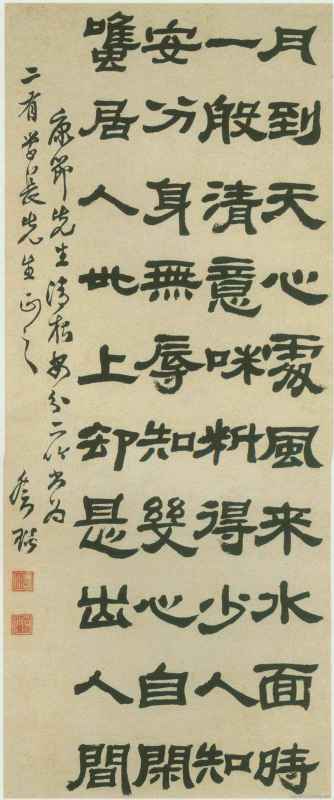 月到天心處風來水面時
一般清意味料得少人知
安分身無辱知幾心自閑
雖居人世上却是出人間
康節先生清夜安分二吟書为
二有學長先生正之